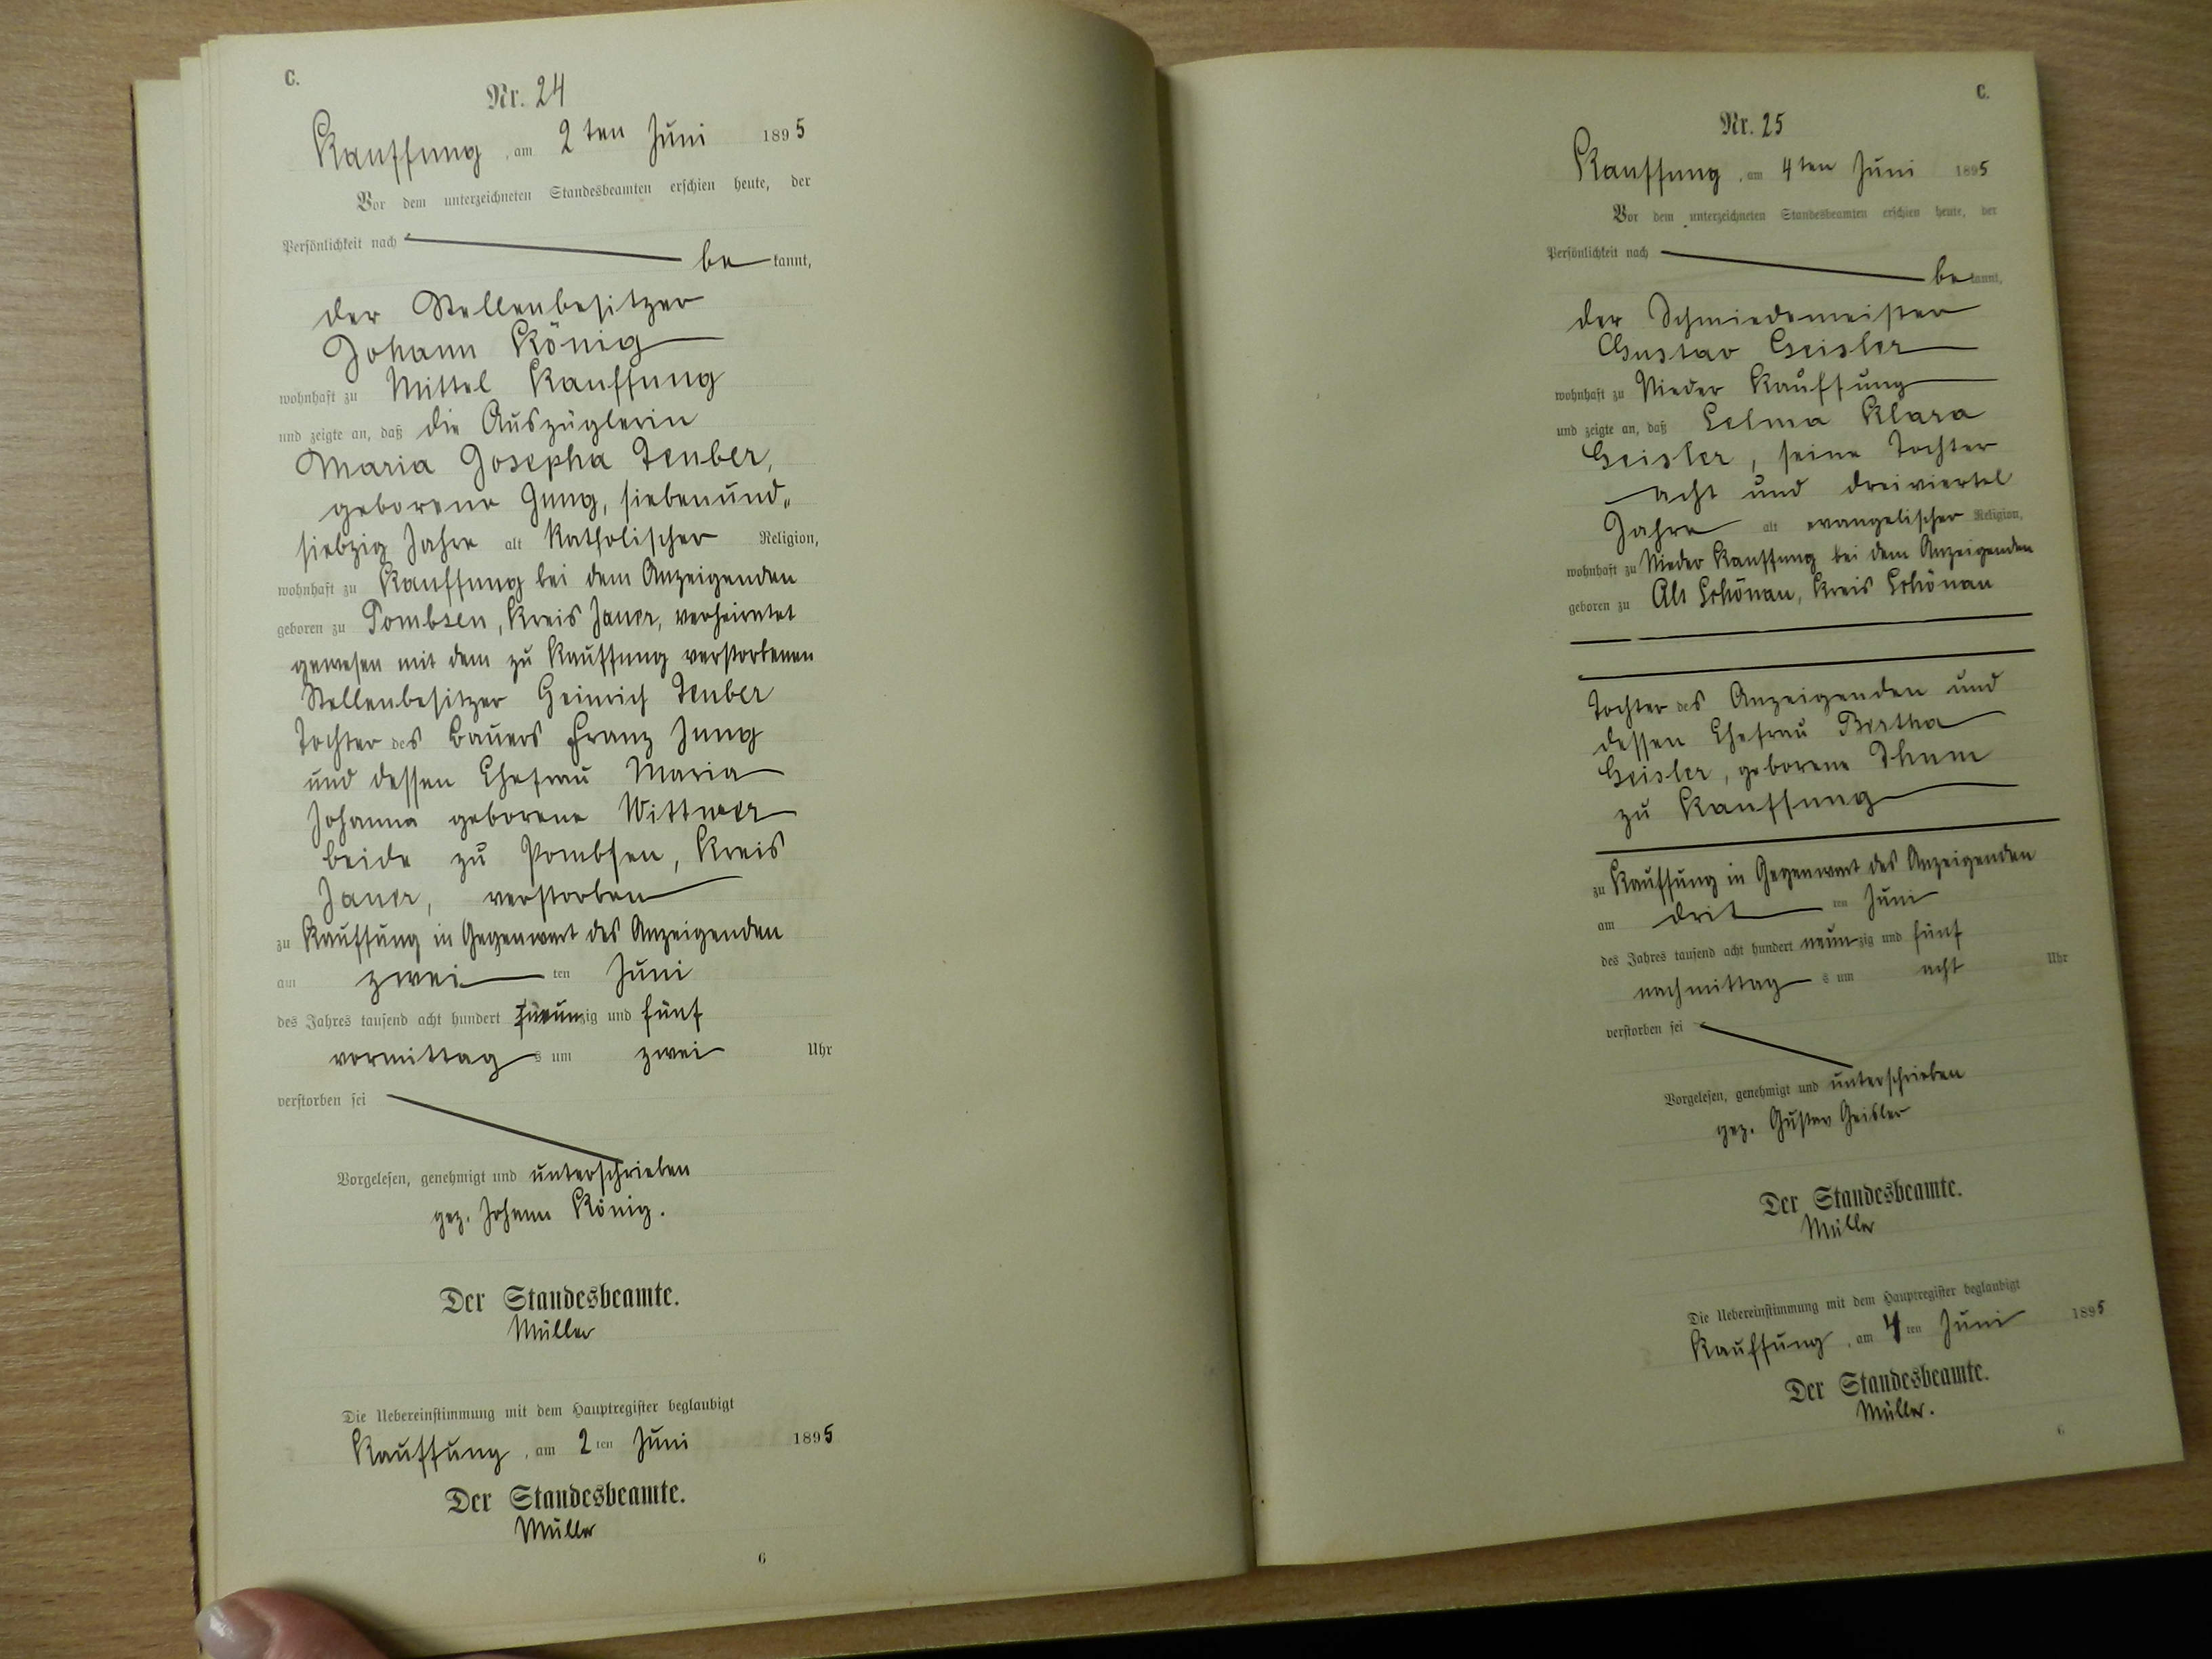 C.
Nr. 24
Kauffung, am 2ten Juni 1895
Vor dem unterzeichneten Standesbeamten erschien heute, der
Persönlichkeit nach
bekannt,
der Stellenbesitzer
Johann König
wohnhaft zu Mittel Kauffung
und zeigte an, daß die Auszüglerin
Maria Josepha Teuber,
geborene Jung, siebenund„
siebzig Jahre alt katholischer Religion,
wohnhaft zu Kauffung bei dem Anzeigenden
geboren zu Pombsen, Kreis Jauer, verheiratet
gewesen mit dem zu Kauffung verstorbenen
Stellenbesitzer Heinrich Teuber
Tochter des Bauers Franz Jung
und dessen Ehefrau Maria
Johanna geborene Wittwer
beide zu Pombsen, Kreis
Jauer, verstorben
zu Kauffung in Gegenwart des Anzeigenden
am zweiten Juni
des Jahres tausend acht hundert neunzig und fünf
vormittags um zwei Uhr
verstorben sei
Vorgelesen, genehmigt und unterschrieben
gez. Johann König.
Der Standesbeamte.
Müller
Die Uebereinstimmung mit dem Hauptregister beglaubigt
Kauffung, am 2ten Juni 1895
Der Standesbeamte.
Müller
6
C.
Nr. 25
Kauffung, am 4ten Juni 1895
Vor dem unterzeichneten Standesbeamten erschien heute, der
Persönlichkeit nach
bekannt,
der Schmiedemeister
Gustav Geisler
wohnhaft zu Nieder Kauffung
und zeigte an, daß Selma Klara
Geisler, seine Tochter
acht und dreiviertel
Jahre alt evangelischer Religion,
wohnhaft zu Nieder Kauffung bei dem Anzeigenden
geboren zu Alt Schönau, Kreis Schönau
Tochter des Anzeigenden und
dessen Ehefrau Bertha
Geisler, geborene Thum
zu Kauffung
zu Kauffung in Gegenwart des Anzeigenden
am dritten Juni
des Jahres tausend acht hundert neunzig und fünf
nachmittags um acht Uhr
verstorben sei
Vorgelesen, genehmigt und unterschrieben
gez. Gustav Geisler
Der Standesbeamte.
Müller
Die Uebereinstimmung mit dem Hauptregister beglaubigt
Kauffung, am 4ten Juni 1895
Der Standesbeamte.
Müller.
6